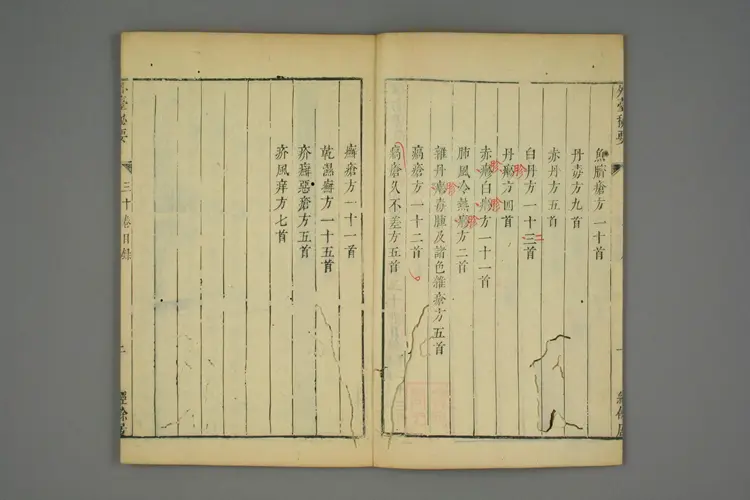 魚臍瘡方一十首
丹毒方九首
赤丹方五首
白丹方一十三首
二
丹方四首
疹
赤白方一十一首
疹
疹
肺風冷熱方二首
疹
雜丹毒腫及諸色雜瘡方五首
疹
瘑瘡方一十二首
瘑瘡久不差方五首
外臺秘要
三十卷目錄
二
經餘居
癬瘡方一十一首
乾濕癬方一十五首
疥癬惡瘡方五首
疥風痒方七首